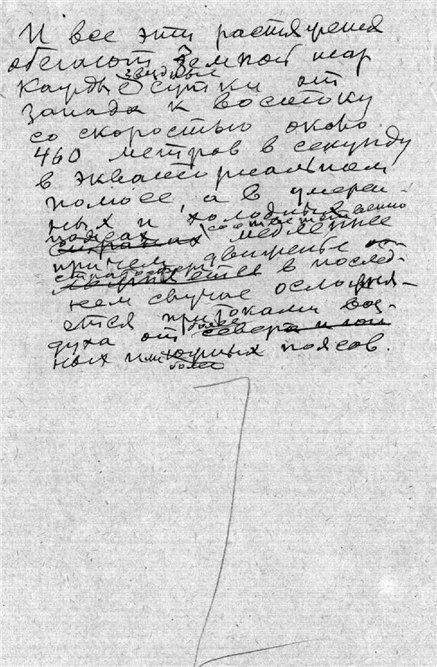 И все эти растяжения
обегают земной шар
каждые звездные сутки от
запада к востоку
со скоростью около
460 метров в секунду
в экваториальном
поясе, а в умерен-
ных и холодных
поясах соответственно
медленнее
причем движенье
в послед-
нем случае осложня-
ется притоками воз-
духа от более
ных или более южных поясов.